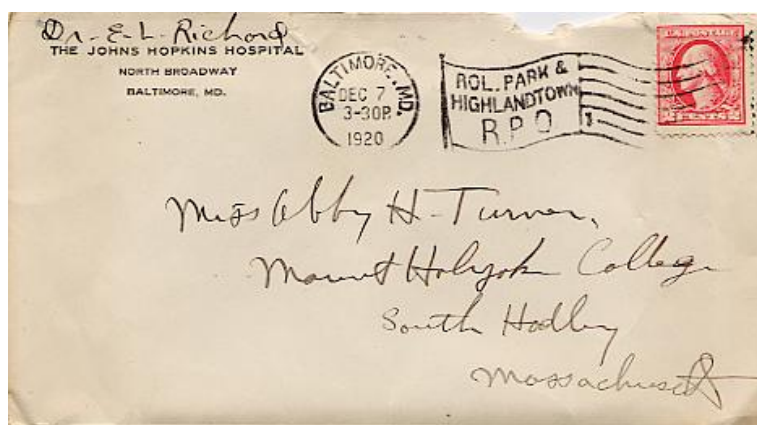 Dr. E. L. Richard
THE JOHNS HOPKINS HOSPITAL
NORTH BROADWAY
BALTIMORE, MD.
BALTIMORE, MD.
DEC 7
3-30P.
1920
ROL. PARK &
HIGHLANDTOWN
R.P.O
1
U.S. POSTAGE
2 CENTS 2
Miss Abby H. Turner,
Mount Holyoke College
South Hadley
Massachusetts